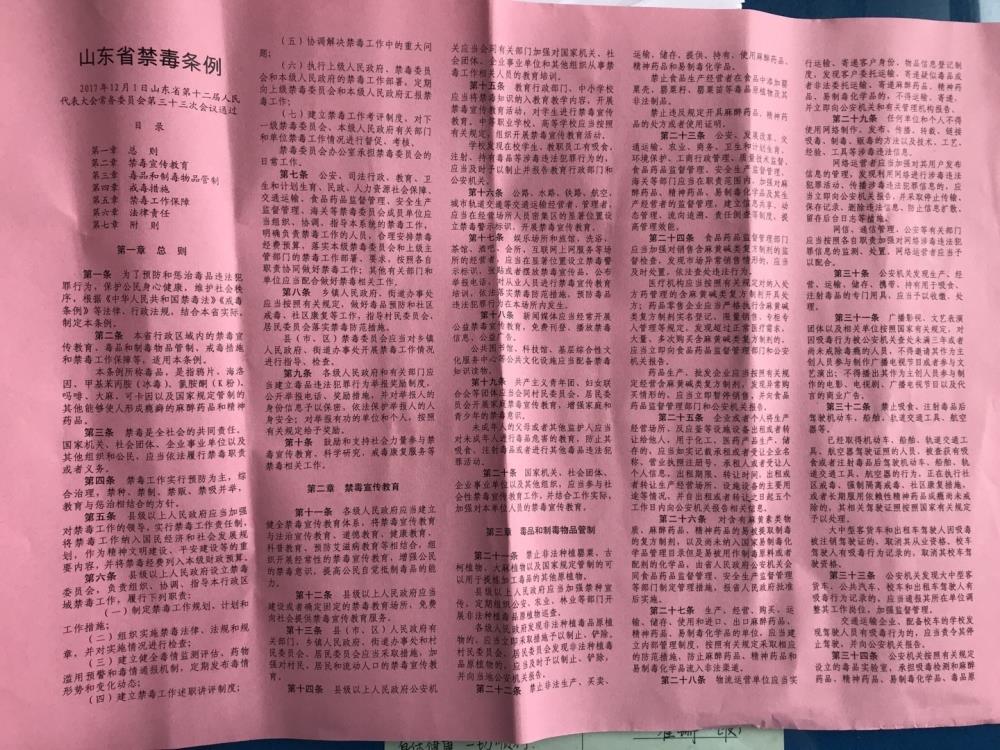 山东省禁毒条例
2017年12月1日山东省第十二届人民
代表大会常务委员会第三十三次会议通过
目 录
第一章 总 则
第二章 禁毒宣传教育
第三章 毒品和制毒物品管制
第四章 戒毒措施
第五章 禁毒工作保障
第六章 法律责任
第七章 附 则
第一章 总 则
第一条 为了预防和惩治毒品违法犯
罪行为，保护公民身心健康，维护社会秩
序，根据《中华人民共和国禁毒法》《戒毒
条例》等法律、行政法规，结合本省实际，
制定本条例。
第二条 本省行政区域内的禁毒宣
传教育、毒品和制毒物品管制、戒毒措施
和禁毒工作保障等，适用本条例。
本条例所称毒品，是指鸦片、海洛
因、甲基苯丙胺（冰毒）、氯胺酮（K粉）、
吗啡、大麻、可卡因以及国家规定管制的
其他能够使人形成瘾癖的麻醉药品和精神
药品。
第三条 禁毒是全社会的共同责任。
国家机关、社会团体、企业事业单位以及
其他组织和公民，应当依法履行禁毒职责
或者义务。
第四条 禁毒工作实行预防为主，综
合治理，禁种、禁制、禁贩、禁吸并举，
教育与惩治相结合的方针。
第五条 县级以上人民政府应当加强
对禁毒工作的领导，实行禁毒工作责任制，
将禁毒工作纳入国民经济和社会发展规
划，作为精神文明建设、平安建设等的重
要内容，并将禁毒经费列入本级财政预算。
第六条 县级以上人民政府设立禁毒
委员会，负责组织、协调、指导本行政区
域禁毒工作，履行下列职责：
（一）制定禁毒工作规划、计划和
工作措施；
（二）组织实施禁毒法律、法规和规
章，并对实施情况进行检查；
（三）建立健全毒情监测评估、药物
滥用预警和毒情通报机制，定期发布毒情
形势和变化动态；
（四）建立禁毒工作述职讲评制度；
（五）协调解决禁毒工作中的重大问
题；
（六）执行上级人民政府、禁毒委员
会和本级人民政府的禁毒工作部署，定期
向上级禁毒委员会和本级人民政府汇报禁
毒工作；
（七）建立禁毒工作考评制度，对下
一级禁毒委员会、本级人民政府有关部门
和单位禁毒工作情况进行督促、考核。
禁毒委员会办公室承担禁毒委员会的
日常工作。
第七条 公安、司法行政、教育、卫
生和计划生育、民政、人力资源社会保障、
交通运输、食品药品监督管理、安全生产
监督管理、海关等禁毒委员会成员单位应
当组织、协调、指导本系统的禁毒工作，
明确负责禁毒工作的人员，合理安排禁毒
经费预算，落实本级禁毒委员会和上级主
管部门的禁毒工作部署、要求，按照各自
职责协同做好禁毒工作；其他有关部门和
单位应当配合做好禁毒相关工作。
第八条 乡镇人民政府、街道办事处
应当按照有关规定，做好毒品预防和社区
戒毒、社区康复等工作，指导村民委员会、
居民委员会落实禁毒防范措施。
县（市、区）禁毒委员会应当对乡镇
人民政府、街道办事处开展禁毒工作情况
进行指导、检查。
第九条 各级人民政府和有关部门应
当建立毒品违法犯罪行为举报奖励制度，
公开举报电话、奖励措施，并对举报人的
身份信息予以保密，依法保护举报人的人
身安全；对举报有功的单位和个人，按照
有关规定给予奖励。
第十条 鼓励和支持社会力量参与禁
毒宣传教育、科学研究、戒毒康复服务等
禁毒相关工作。
第二章 禁毒宣传教育
第十一条 各级人民政府应当建立
健全禁毒宣传教育体系，将禁毒宣传教育
与法治宣传教育、道德教育、健康教育、
科普教育、预防艾滋病教育等相结合，组
织开展经常性的禁毒宣传教育，增强公民
的禁毒意识，提高公民自觉抵制毒品的能
力。
第十二条 县级以上人民政府应当
建设或者确定固定的禁毒教育场所，免费
向社会提供禁毒宣传教育服务。
第十三条 县（市、区）人民政府有关
部门，乡镇人民政府、街道办事处和村
民委员会、居民委员会应当采取措施，加
强对村民、居民和流动人口的禁毒宣传教
育。
第十四条 县级以上人民政府公安机
关应当会同有关部门加强对国家机关、社
会团体、企业事业单位和其他组织从事禁
毒工作相关人员的教育培训。
第十五条 教育行政部门、中小学校
应当将禁毒知识纳入教育教学内容，开展
禁毒宣传教育活动，对学生进行禁毒宣传
教育。中等职业学校、高等学校应当按照
有关规定，组织开展禁毒宣传教育活动。
学校发现在校学生、教职员工有吸食、
注射、持有毒品等涉毒违法犯罪行为的，
应当及时予以制止并报告教育行政部门和
公安机关。
第十六条 公路、水路、铁路、航空、
城市轨道交通等交通运输经营者、管理者，
应当在经营场所人员密集区的显著位置设
立禁毒警示标识，开展禁毒宣传教育。
第十七条 娱乐场所和旅馆、洗浴、
茶馆、酒吧、会所、互联网上网服务等场
所的经营者，应当在显著位置设立禁毒警
示标识，张贴或者摆放禁毒宣传品，公布
举报电话，对从业人员进行禁毒宣传教育
培训，依法落实禁毒防范措施，预防毒品
违法犯罪行为在本场所内发生。
第十八条 新闻媒体应当经常开展
公益禁毒宣传教育，免费刊登、播放禁毒
信息、公益广告。
公共图书馆、科技馆、基层综合性文
化服务中心等公共文化设施应当配备禁毒
知识读物。
第十九条 共产主义青年团、妇女联
合会等团体应当会同村民委员会、居民委
员会开展家庭禁毒宣传教育，增强家庭和
青少年的禁毒意识。
未成年人的父母或者其他监护人应当
对未成年人进行毒品危害的教育，防止其
吸食、注射毒品或者进行其他毒品违法犯
罪活动。
第二十条 国家机关、社会团体、
企业事业单位以及其他组织，应当参与社
会性禁毒宣传教育工作，并结合工作实际，
加强对本单位人员的禁毒宣传教育。
第三章 毒品和制毒物品管制
第二十一条 禁止非法种植罂粟、古
柯植物、大麻植物以及国家规定管制的可
以用于提炼加工毒品的其他原植物。
县级以上人民政府应当加强禁种宣
传，定期组织公安、农业、林业等部门开
展非法种植毒品原植物巡查。
各级人民政府发现非法种植毒品原植
物的，应当立即采取措施予以制止、铲除。
村民委员会、居民委员会发现非法种植毒
品原植物的，应当及时予以制止、铲除，
并向当地公安机关报告。
第二十二条 禁止非法生产、买卖、
运输、储存、提供、持有、使用麻醉药品、
精神药品和易制毒化学品。
禁止食品生产经营者在食品中添加罂
粟壳、罂粟籽、罂粟苗等毒品原植物及其
非法制品。
禁止违反规定开具麻醉药品、精神药
品的处方或者使用证明。
第二十三条 公安、发展改革、交
通运输、农业、商务、卫生和计划生育、
环境保护、工商行政管理、质量技术监督、
食品药品监督管理、安全生产监督管理、
海关等部门应当在职责范围内，加强对麻
醉药品、精神药品、易制毒化学品及其生
产经营者的监督管理，建立信息共享、动
态管理、流向追溯、责任倒查等制度，提
高管理效能。
第二十四条 食品药品监督管理部门
应当加强对销售含麻黄碱类复方制剂的监
督检查，发现市场异常销售情形的，应当
及时处置，依法查处违法行为。
医疗机构应当按照有关规定对纳入处
方药管理的含麻黄碱类复方制剂开具处
方；药品零售企业应当严格执行含麻黄碱
类复方制剂实名登记、限量销售、专柜专
人管理等规定，发现超过正常医疗需求，
大量、多次购买含麻黄碱类复方制剂的，
应当立即向食品药品监督管理部门和公安
机关报告。
药品生产、批发企业应当按照有关规
定经营含麻黄碱类复方制剂，发现异常购
买情形的，应当立即暂停销售，并向食品
药品监督管理部门和公安机关报告。
第二十五条 企业或者个人将生产
经营场所、反应釜等设施设备出租或者转
让给他人，用于化工、医药产品生产、储
存的，应当如实记载承租人或者受让企业名
称、营业执照注册号，承租人或者受让人
个人信息，出租期限、转让时间，出租或
者转让生产经营场所、设施设备的主要用
途等情况，并自出租或者转让之日起五个
工作日内向公安机关报告相关信息。
第二十六条 对含有麻黄素类物
质、麻醉药品、精神药品的易被提取制毒
的复方制剂，以及尚未纳入国家易制毒化
学品管理目录但是易被用作制毒原料或者
配剂的化学品，由省人民政府公安机关会
同食品药品监督管理、安全生产监督管理
等部门制定管理措施，报省人民政府批准
后实施。
第二十七条 生产、经营、购买、运
输、储存、使用和进口、出口麻醉药品、
精神药品、易制毒化学品的单位，应当建
立内部管理制度，按照有关规定采取相应
的防范措施，防止麻醉药品、精神药品和
易制毒化学品流入非法渠道。
第二十八条 物流运营单位应当实
行运输、寄递客户身份、物品信息登记制
度，发现客户委托运输、寄递疑似毒品或
者非法委托运输、寄递麻醉药品、精神药
品、易制毒化学品的，不得运输、寄递，
并立即向公安机关和有关管理机构报告。
第二十九条 任何单位和个人不得
使用网络制作、发布、传播、转载、链接
吸毒、制毒、贩毒的方法以及技术、工艺、
经验、工具等涉毒违法信息。
网络运营者应当加强对其用户发布
信息的管理，发现利用网络进行涉毒违法
犯罪活动、传播涉毒违法犯罪信息的，应
当立即向公安机关报告，并采取停止传输、
保存记录、避险违法信息、防止信息扩散、
留存后台日志等措施。
网信、通信管理、公安等有关部门
应当按照各自职责加强对网络涉毒违法犯
罪信息的监测、处置。网络运营者应当予
以配合。
第三十条 公安机关发现生产、经
营、运输、储存、携带、持有用于吸食、
注射毒品的专门用具，应当予以收缴、处
理。
第三十一条 广播影视、文艺表演
团体以及相关单位按照国家有关规定，对
因吸毒行为被公安机关查处未满三年或者
尚未戒除毒瘾的人员，不得邀请其作为主
创人员参与制作广播电视节目或者参与文
艺演出；不得播出其作为主创人员参与制
作的电影、电视剧、广播电视节目以及代
言的商业广告。
第三十二条 禁止吸食、注射毒品后
驾驶机动车、船舶、轨道交通工具、航空
器。
已经取得机动车、船舶、轨道交通工
具、航空器驾驶证照的人员，被查获有吸
食或者注射毒品后驾驶机动车、船舶、轨
道交通工具、航空器的行为，正在执行社
区戒毒、强制隔离戒毒、社区康复措施，
或者长期服用依赖性精神药品成瘾尚未戒
除的，其相关驾驶证照按照国家有关规定
予以处理。
大中型客货车和出租车驾驶人因吸毒
被注销驾驶证的，取消其从业资格。校车
驾驶人有吸毒行为记录的，取消其校车驾
驶资格。
第三十三条 公安机关发现大中型客
货车、公共汽车、校车和出租车驾驶人有
吸毒行为记录的，应当通报其所在单位调
整其工作岗位，加强监督管理。
交通运输企业、配备校车的学校发
现驾驶人员有吸毒行为的，应当责令其停
止驾驶，并向公安机关报告。
第三十四条 公安机关按照有关规定
设立的毒品实验室，承担吸毒检测和麻醉
药品、精神药品、易制毒化学品、毒品原